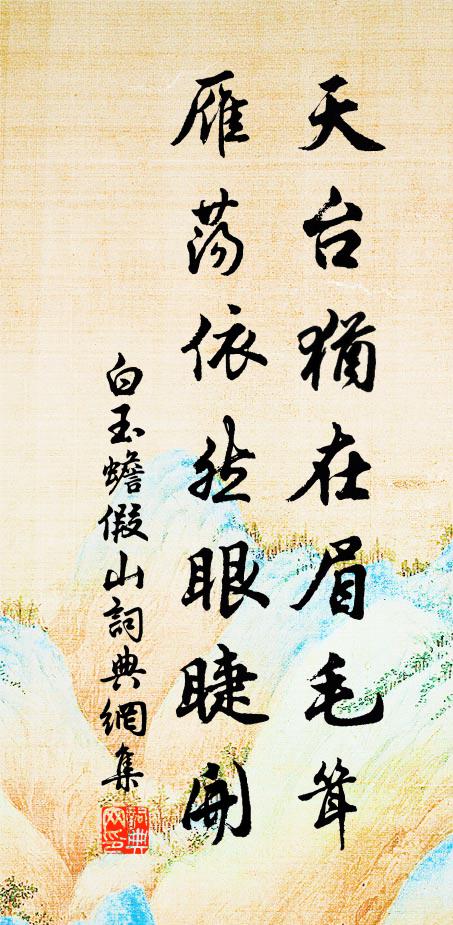 天台猶在眉毛聳
雁荡依然眼睫開
白玉蟾假山詞典網集
詞典